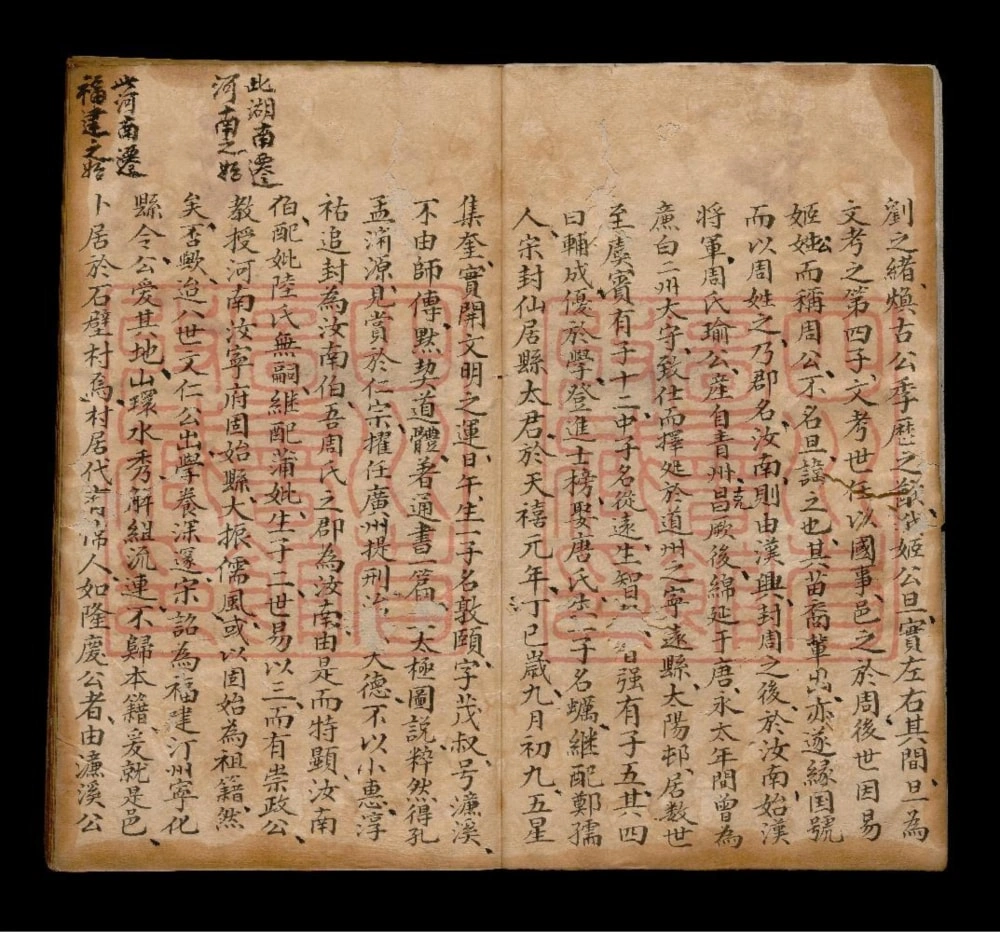 劉之緒煥古公季歷之姬公旦實左右其間旦為
文考之第四子文考世任以國事邑之於周後世因易
姬姓而稱周公不名旦諱之也其苗裔輩出亦遂緣国號
而以周姓之乃郡名汝南則由漢興封周之後於汝南始漢
將軍周氏瑜公產自青州昌厥後綿延于唐永太年間曾為
廉白二州太守致仕而擇処於道州之寧遠縣太陽邨居数世
至虞賓有子十二中子名從遠生智智强有子五其四
曰輔成優於學登進士榜娶唐氏生一子名蠣継配鄭孺
人宋封仙居縣太君於天禧元年丁巳嵗九月初九五星
集奎實開文明之運日午生一子名敦頤字茂叔号濂溪
不由師傳默契道體著通書一篇太極圖說粹然得孔
孟淵源見賞於仁宗擢任廣州提刑大德不以小惠淳
祐追封為汝南伯吾周氏之郡為汝南由是而特顯汝南
伯配妣陸氏無嗣継配蒲妣生一子二世易以三而有崇政公
教授河南汝寧府固始縣大振儒風或以固始為祖籍然
矣否歟迨八世文仁公出學養深邃宋詔為福建汀州寧化
縣令公爱其地山環水秀解組流連不歸本籍爰就是邑
卜居於石壁村焉村居代人如隆慶公者由濂溪公
此湖南遷
河南之始
此河南遷
福建之始